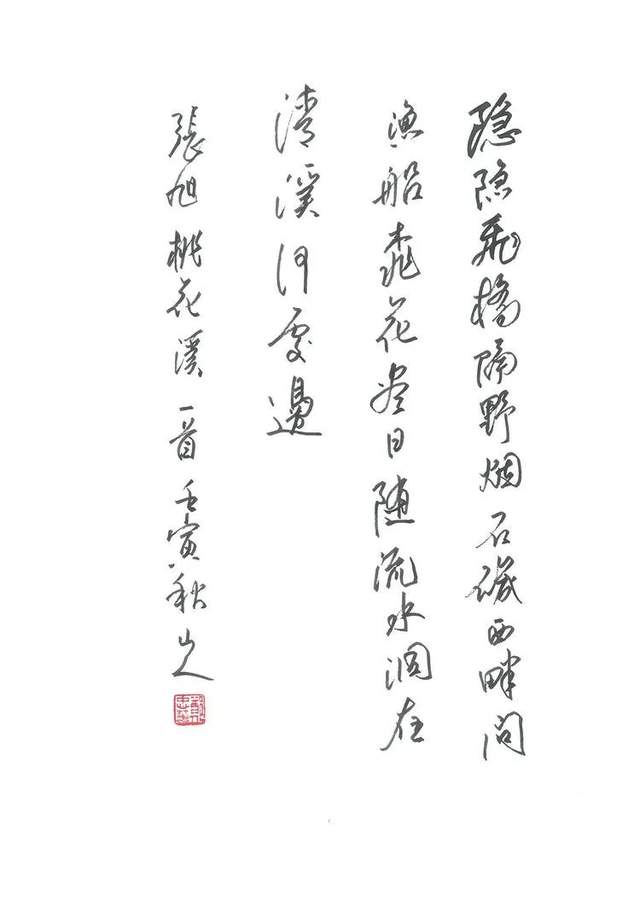 隐隐飛橋隔野烟石磯西畔问
渔船桃花尽日随流水洞在
清溪何處邊
張旭桃花溪一首壬寅秋山人